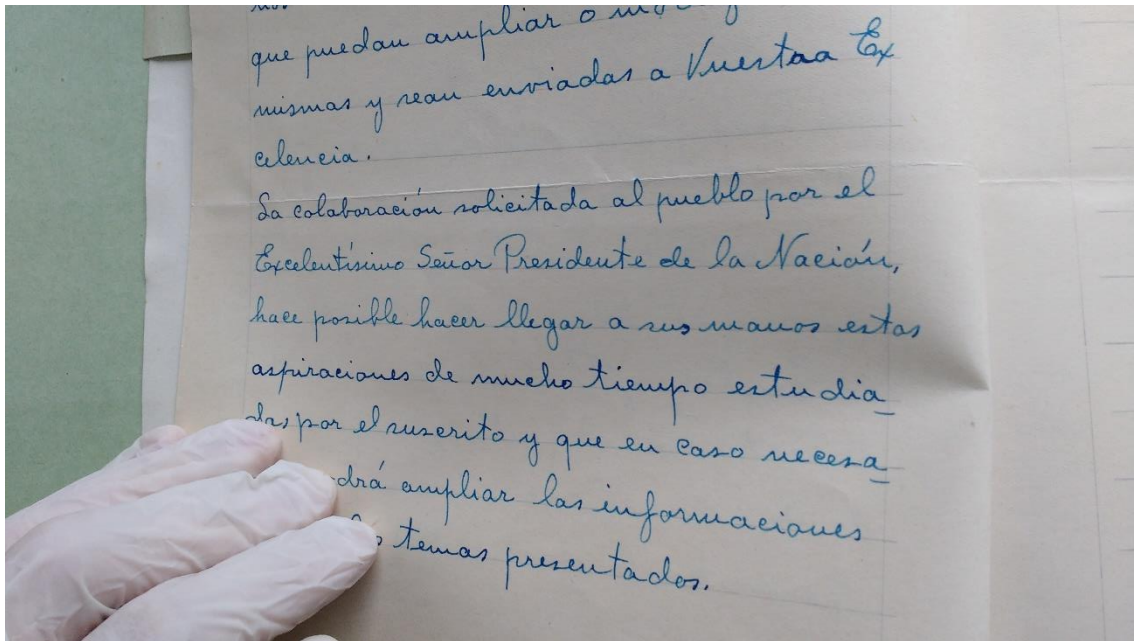 que puedan ampliar o
mismas y sean enviadas a Vuestra Ex
celencia.
La colaboración solicitada al pueblo por el
Excelentísimo Señor Presidente de la Nación,
hace posible hacer llegar a sus manos estas
aspiraciones de mucho tiempo estudia_
das por el suscrito y que en caso necesa_
drá ampliar las informaciones
temas presentados.